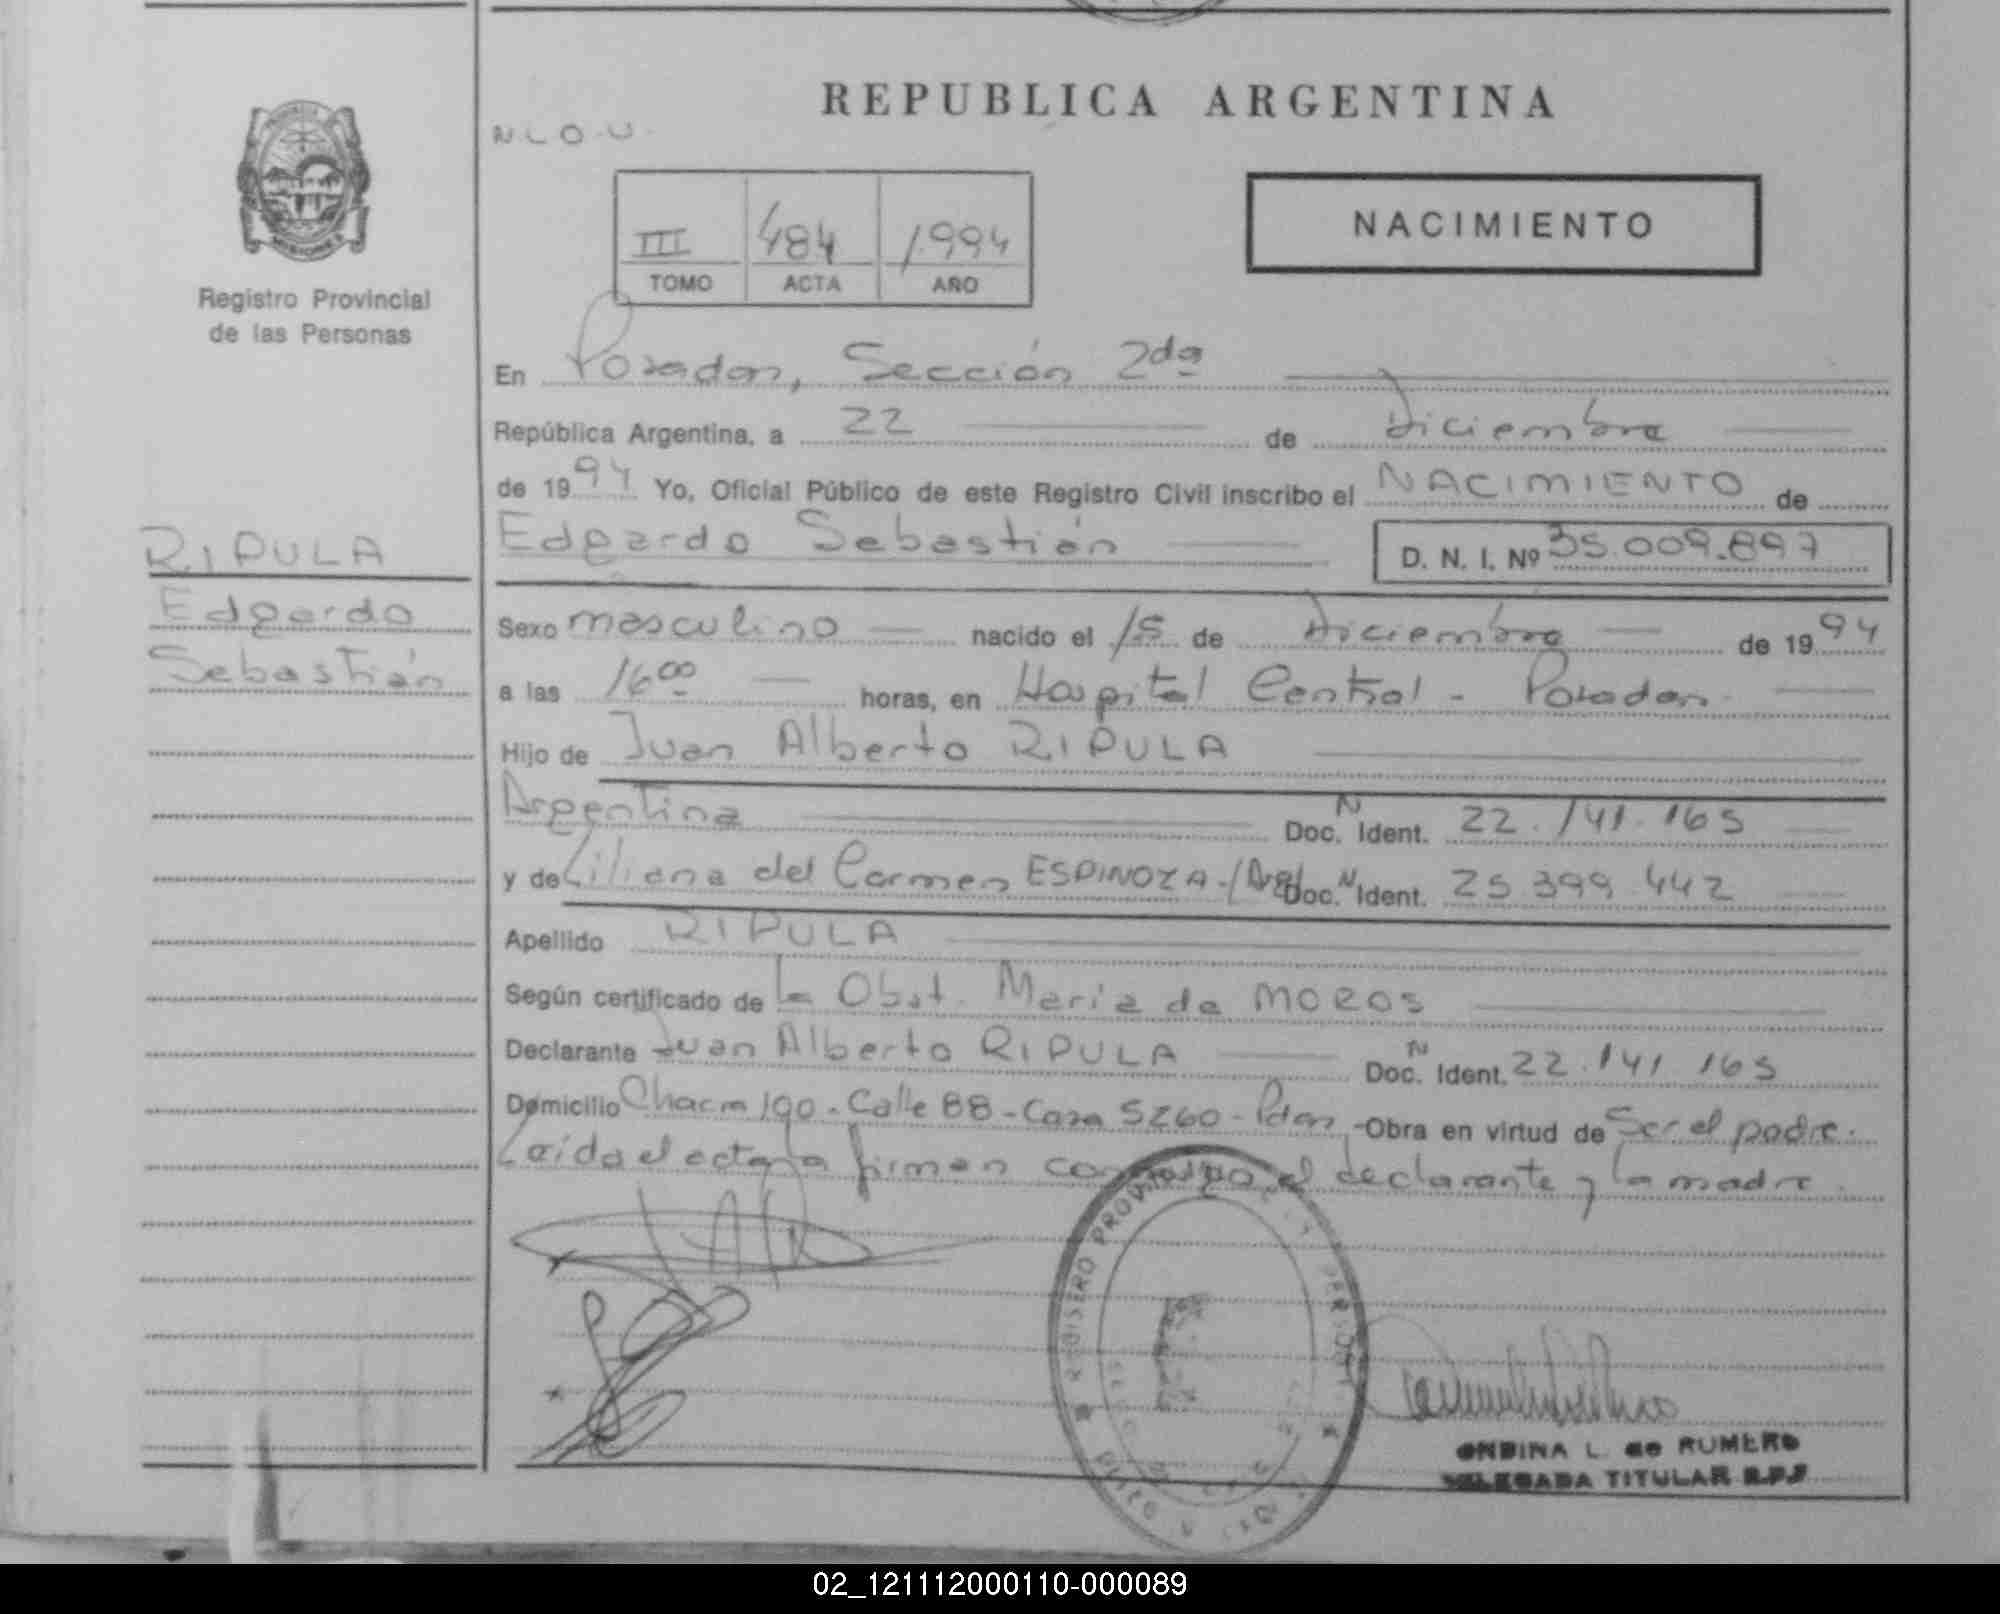 REPUBLICA ARGENTINA
N L O U
NACIMIENTO
III 484 1.994
TOMO ACTA AÑO
Registro Provincial
de las Personas
En Posadas, Sección 2da
República Argentina, a 22 de Diciembre
de 1994 Yo, Oficial Público de este Registro Civil inscribo el NACIMIENTO de
RIPULA
Edgardo
Sebastián
Edgardo Sebastián D. N. I. Nº 35.009.897
Sexo masculino nacido el 15 de Diciembre de 1994
a las 16 00 horas, en Hospital Central - Posadas
Hijo de Juan Alberto RIPULA
Argentina Doc. N Ident. 22.141.165
y de Liliana del Carmen ESPINOZA - (Arg) Doc. N Ident. 25 399 442
Apellido RIPULA
Según certificado de la Obst. María de MOROS
Declarante Juan Alberto RIPULA Doc. N Ident. 22.141 165
Domicilio Chacra 190 - Calle 88 - Casa 5260 - Pdas -Obra en virtud de Ser el padre.
Leída el acta la firman conmigo el declarante y la madre.
REGISTRO PROVINCIAL DE LAS PERSONAS
ONDINA L. de ROMERO
DELEGADA TITULAR R.P.P
02_121112000110-000089